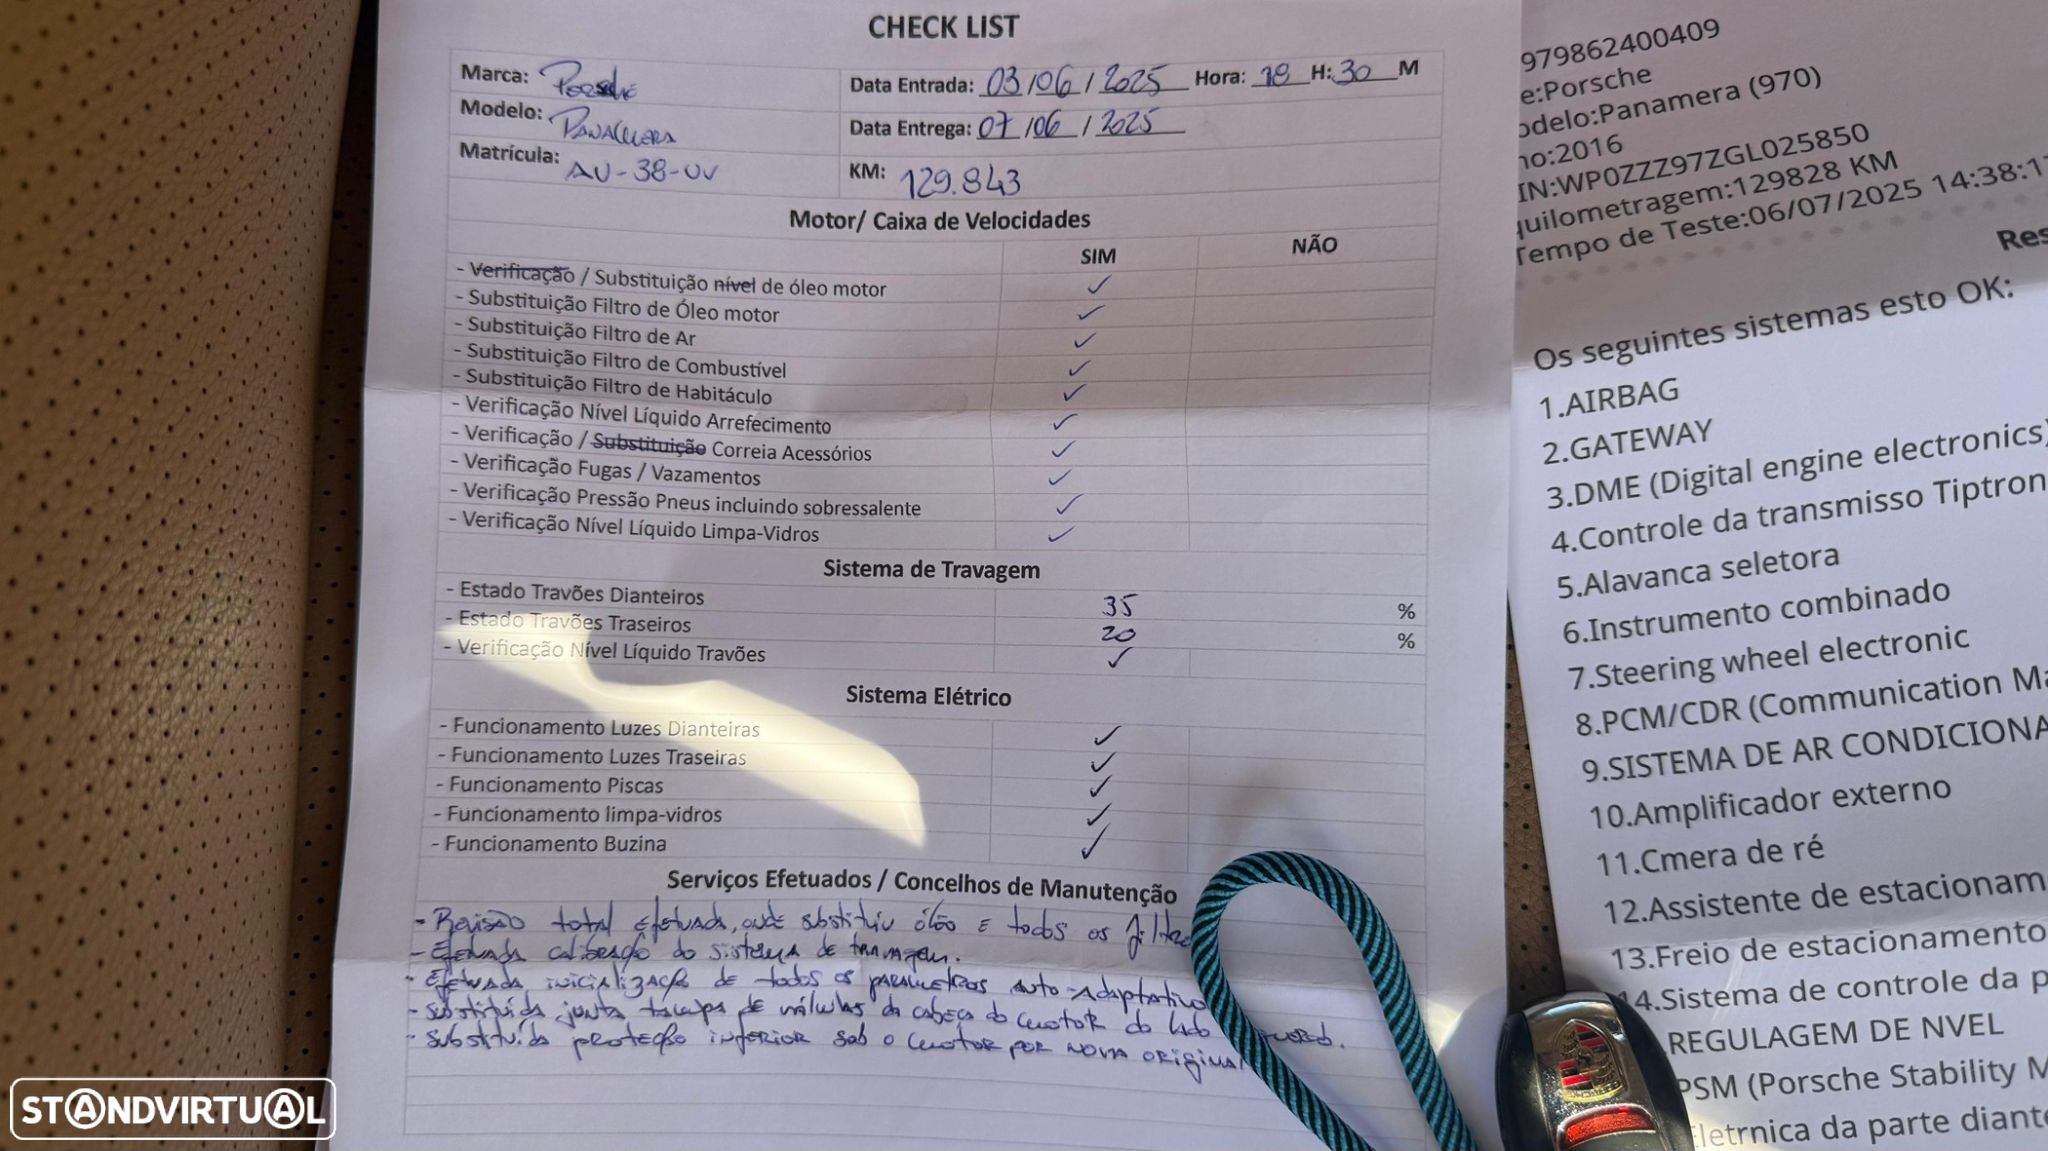 CHECK LIST
Marca: Porsche
Data Entrada: 03/06/2025 Hora: 18 H: 30 M
Modelo: Panamera
Data Entrega: 07/06/2025
Matrícula: AU-38-UV
KM: 129.843
Motor/ Caixa de Velocidades
SIM NÃO
- Verificação / Substituição nível de óleo motor ✓
- Substituição Filtro de Óleo motor ✓
- Substituição Filtro de Ar ✓
- Substituição Filtro de Combustível ✓
- Substituição Filtro de Habitáculo ✓
- Verificação Nível Líquido Arrefecimento ✓
- Verificação / Substituição Correia Acessórios ✓
- Verificação Fugas / Vazamentos ✓
- Verificação Pressão Pneus incluindo sobressalente ✓
- Verificação Nível Líquido Limpa-Vidros ✓
Sistema de Travagem
- Estado Travões Dianteiros 35 %
- Estado Travões Traseiros 20 %
- Verificação Nível Líquido Travões ✓
Sistema Elétrico
- Funcionamento Luzes Dianteiras ✓
- Funcionamento Luzes Traseiras ✓
- Funcionamento Piscas ✓
- Funcionamento limpa-vidros ✓
- Funcionamento Buzina ✓
Serviços Efetuados / Concelhos de Manutenção
- Revisão total efetuada, onde substituiu óleo e todos os filtro
- Efetuada calibração do sistema de travagem.
- Efetuada inicialização de todos os parametros auto-adaptativo
- Substituída junta tampa de válvulas da cabeça do motor do lado
- Substituída proteção inferior sob o motor por nova original
979862400409
e:Porsche
odelo:Panamera (970)
no:2016
IN:WP0ZZZ97ZGL025850
quilometragem:129828 KM
Tempo de Teste:06/07/2025 14:38:1
Res
Os seguintes sistemas esto OK:
1.AIRBAG
2.GATEWAY
3.DME (Digital engine electronics)
4.Controle da transmisso Tiptron
5.Alavanca seletora
6.Instrumento combinado
7.Steering wheel electronic
8.PCM/CDR (Communication Ma
9.SISTEMA DE AR CONDICIONA
10.Amplificador externo
11.Cmera de ré
12.Assistente de estacionam
13.Freio de estacionamento
14.Sistema de controle da p
.REGULAGEM DE NVEL
PSM (Porsche Stability M
Eletrnica da parte diante
STANDVIRTUAL